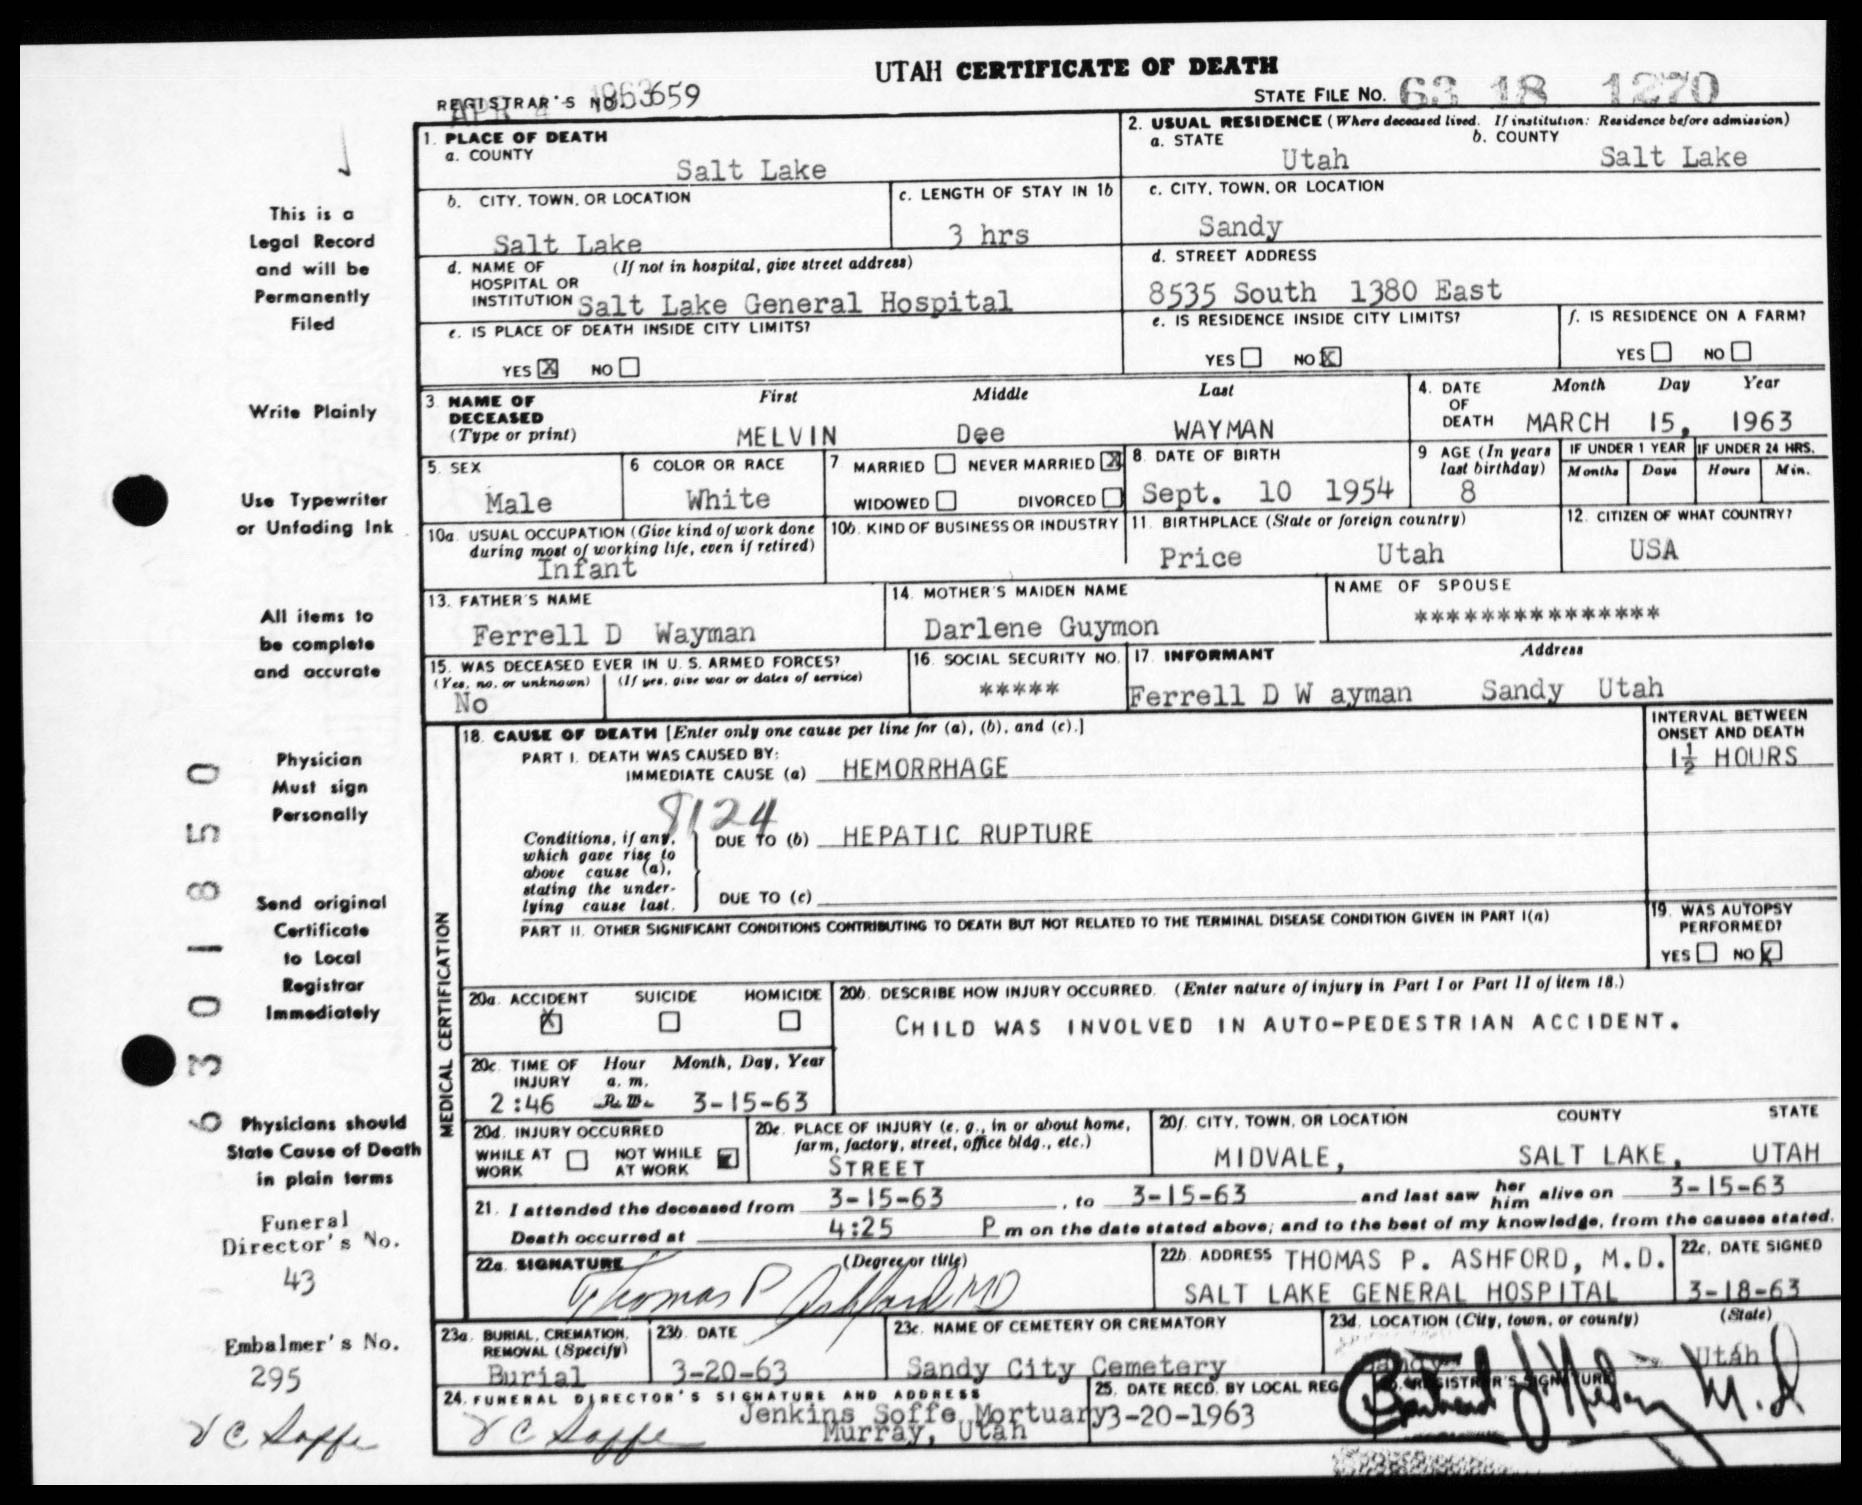 UTAH CERTIFICATE OF DEATH
REGISTRAR'S NO. 659
APR 4 1963
STATE FILE NO. 63 18 1270
1. PLACE OF DEATH
a. COUNTY
Salt Lake
2. USUAL RESIDENCE (Where deceased lived. If institution: Residence before admission)
a. STATE b. COUNTY
Utah Salt Lake
b. CITY, TOWN, OR LOCATION
Salt Lake
c. LENGTH OF STAY IN 1b
3 hrs
c. CITY, TOWN, OR LOCATION
Sandy
d. NAME OF (If not in hospital, give street address)
HOSPITAL OR
INSTITUTION Salt Lake General Hospital
d. STREET ADDRESS
8535 South 1380 East
e. IS PLACE OF DEATH INSIDE CITY LIMITS?
YES X NO
e. IS RESIDENCE INSIDE CITY LIMITS?
YES NO X
f. IS RESIDENCE ON A FARM?
YES NO
3. NAME OF DECEASED
(Type or print)
First Middle Last
MELVIN Dee WAYMAN
4. DATE OF DEATH
Month Day Year
MARCH 15, 1963
5. SEX
Male
6 COLOR OR RACE
White
7 MARRIED NEVER MARRIED X
WIDOWED DIVORCED
8. DATE OF BIRTH
Sept. 10 1954
9 AGE (In years last birthday)
8
IF UNDER 1 YEAR
Months Days
IF UNDER 24 HRS.
Hours Min.
10a. USUAL OCCUPATION (Give kind of work done
during most of working life, even if retired)
Infant
10b. KIND OF BUSINESS OR INDUSTRY
11. BIRTHPLACE (State or foreign country)
Price Utah
12. CITIZEN OF WHAT COUNTRY?
USA
13. FATHER'S NAME
Ferrell D Wayman
14. MOTHER'S MAIDEN NAME
Darlene Guymon
NAME OF SPOUSE
***************
15. WAS DECEASED EVER IN U. S. ARMED FORCES?
(Yes, no, or unknown) (If yes, give war or dates of service)
No
16. SOCIAL SECURITY NO.
*****
17. INFORMANT Address
Ferrell D W ayman Sandy Utah
MEDICAL CERTIFICATION
18. CAUSE OF DEATH [Enter only one cause per line for (a), (b), and (c).]
INTERVAL BETWEEN
ONSET AND DEATH
PART I. DEATH WAS CAUSED BY:
IMMEDIATE CAUSE (a) HEMORRHAGE
1½ HOURS
8124
Conditions, if any,
which gave rise to
above cause (a),
stating the under-
lying cause last.
DUE TO (b) HEPATIC RUPTURE
DUE TO (c)
PART II. OTHER SIGNIFICANT CONDITIONS CONTRIBUTING TO DEATH BUT NOT RELATED TO THE TERMINAL DISEASE CONDITION GIVEN IN PART I(a)
19. WAS AUTOPSY
PERFORMED?
YES NO X
20a. ACCIDENT SUICIDE HOMICIDE
X
20b. DESCRIBE HOW INJURY OCCURRED. (Enter nature of injury in Part I or Part II of item 18.)
CHILD WAS INVOLVED IN AUTO-PEDESTRIAN ACCIDENT.
20c. TIME OF INJURY
Hour Month, Day, Year
a. m.
p. m.
2:46 3-15-63
20d. INJURY OCCURRED
WHILE AT WORK NOT WHILE AT WORK
20e. PLACE OF INJURY (e. g., in or about home,
farm, factory, street, office bldg., etc.)
STREET
20f. CITY, TOWN, OR LOCATION COUNTY STATE
MIDVALE, SALT LAKE, UTAH
21. I attended the deceased from 3-15-63, to 3-15-63 and last saw her him alive on 3-15-63
Death occurred at 4:25 P m on the date stated above; and to the best of my knowledge, from the causes stated.
22a. SIGNATURE (Degree or title)
Thomas P Ashford MD
22b. ADDRESS THOMAS P. ASHFORD, M.D.
SALT LAKE GENERAL HOSPITAL
22c. DATE SIGNED
3-18-63
23a. BURIAL, CREMATION,
REMOVAL (Specify)
Burial
23b. DATE
3-20-63
23c. NAME OF CEMETERY OR CREMATORY
Sandy City Cemetery
23d. LOCATION (City, town, or county) (State)
Sandy Utah
24. FUNERAL DIRECTOR'S SIGNATURE AND ADDRESS
V C Soffe
Jenkins Soffe Mortuary
Murray, Utah
25. DATE RECD. BY LOCAL REG
3-20-1963
REGISTRAR'S SIGNATURE
M.D.
This is a
Legal Record
and will be
Permanently
Filed
Write Plainly
Use Typewriter
or Unfading Ink
All items to
be complete
and accurate
Physician
Must sign
Personally
Send original
Certificate
to Local
Registrar
Immediately
Physicians should
State Cause of Death
in plain terms
Funeral
Director's No.
43
Embalmer's No.
295
V C Soffe
6301850